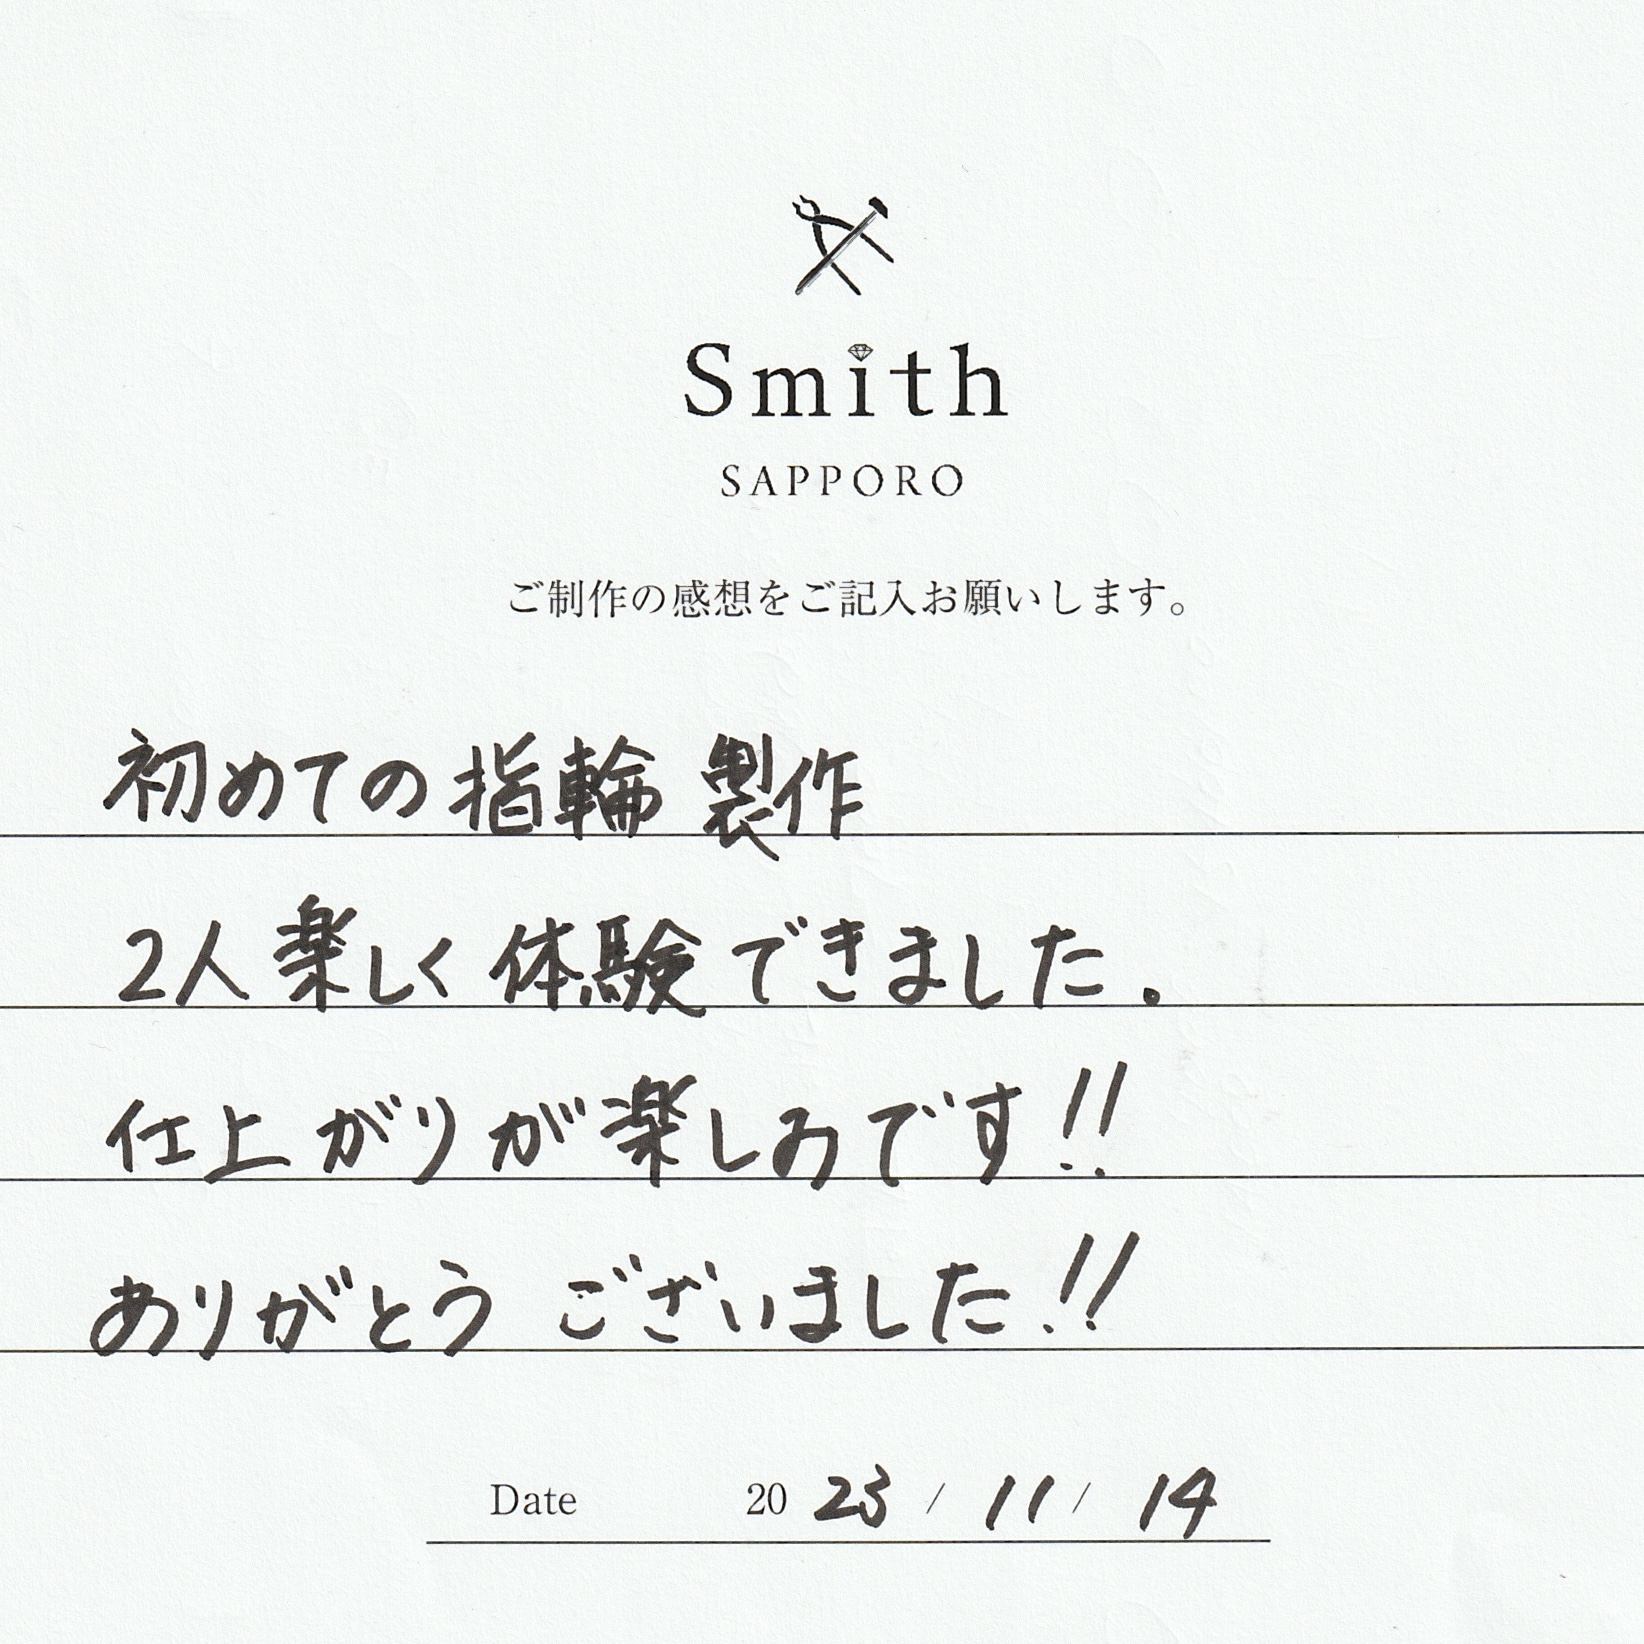 Smith
SAPPORO
ご制作の感想をご記入お願いします。
初めての指輪 製作
2人楽しく体験できました。
仕上がりが楽しみです!!
ありがとうございました!!
Date 2023 / 11 / 14